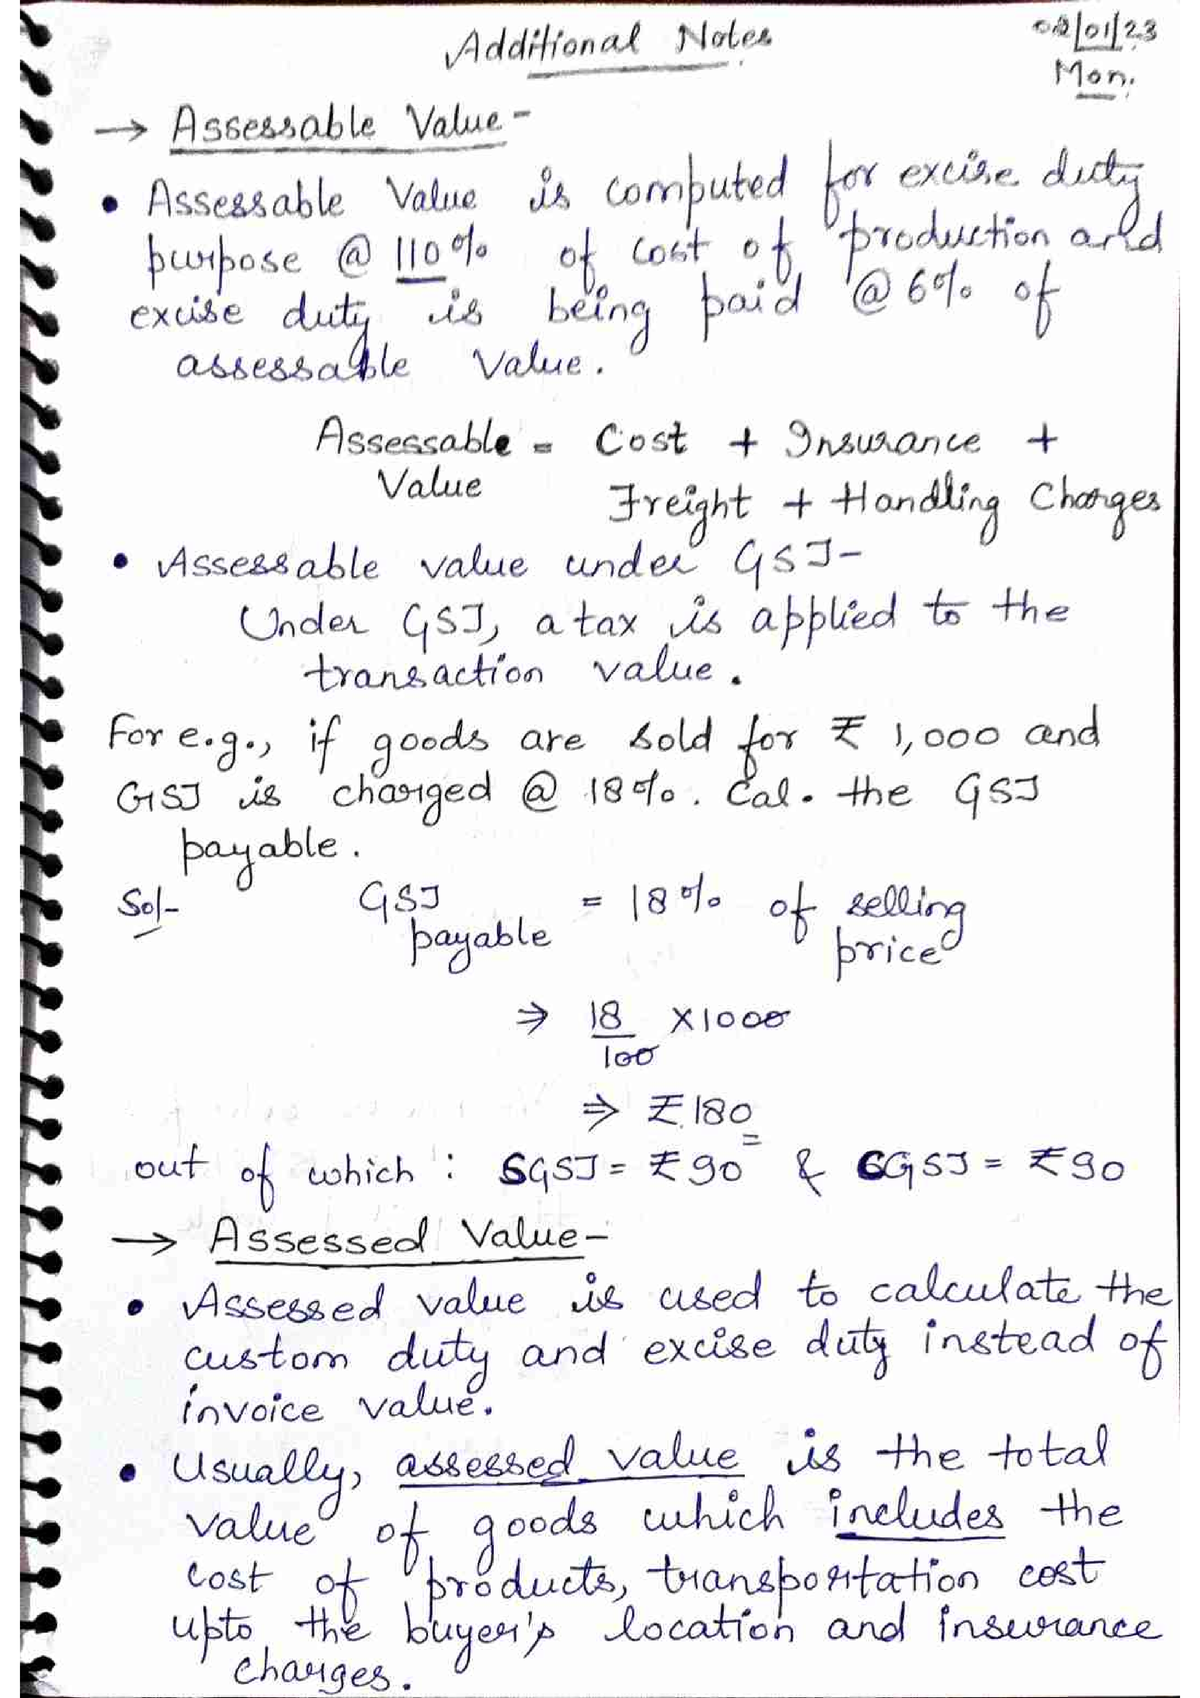 Additional Notes
02/01/23
Mon.
→ Assessable Value-
• Assessable Value is computed for excise duty
purpose @ 110% of cost of production and
excise duty is being paid @ 6% of
assessable Value.
Assessable = Cost + Insurance +
Value Freight + Handling Charges
• Assessable value under GST-
Under GST, a tax is applied to the
transaction value.
For e.g., if goods are sold for ₹ 1,000 and
GST is charged @ 18%. Cal. the GST
payable.
Sol- GST = 18% of selling
payable price
⇒ 18/100 X1000
⇒ ₹180
out of which : SGST = ₹90 & CGST = ₹90
→ Assessed Value-
• Assessed value is used to calculate the
custom duty and excise duty instead of
invoice value.
• Usually, assessed value is the total
value of goods which includes the
cost of products, transportation cost
upto the buyer's location and insurance
charges.